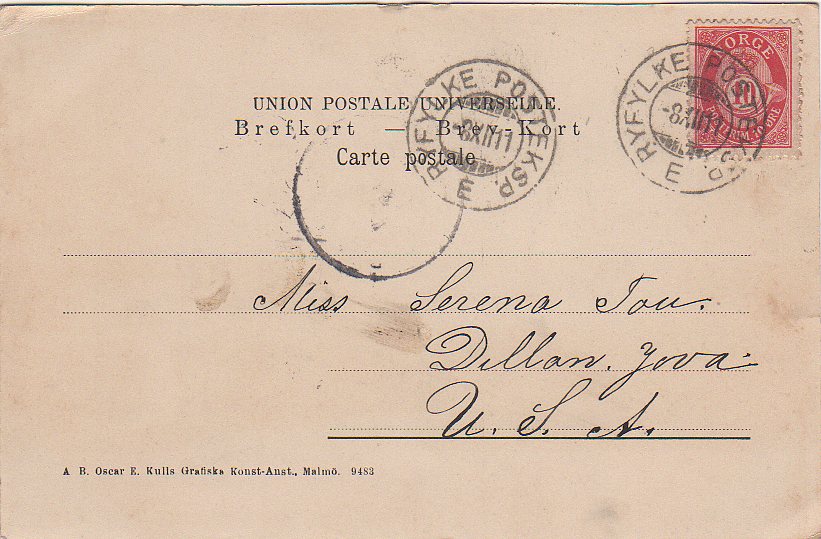 NORGE
10
UNION POSTALE UNIVERSELLE.
Brefkort — Brev-Kort
Carte postale
RYFYLKE POSTEKSP. E
-8 XII 11
RYFYLKE POSTEKSP. E
-8 XII 11
Miss Serena Tou.
Dillon. Jova.
U. S. A.
A B. Oscar E. Kulls Grafiska Konst-Anst., Malmö. 9483